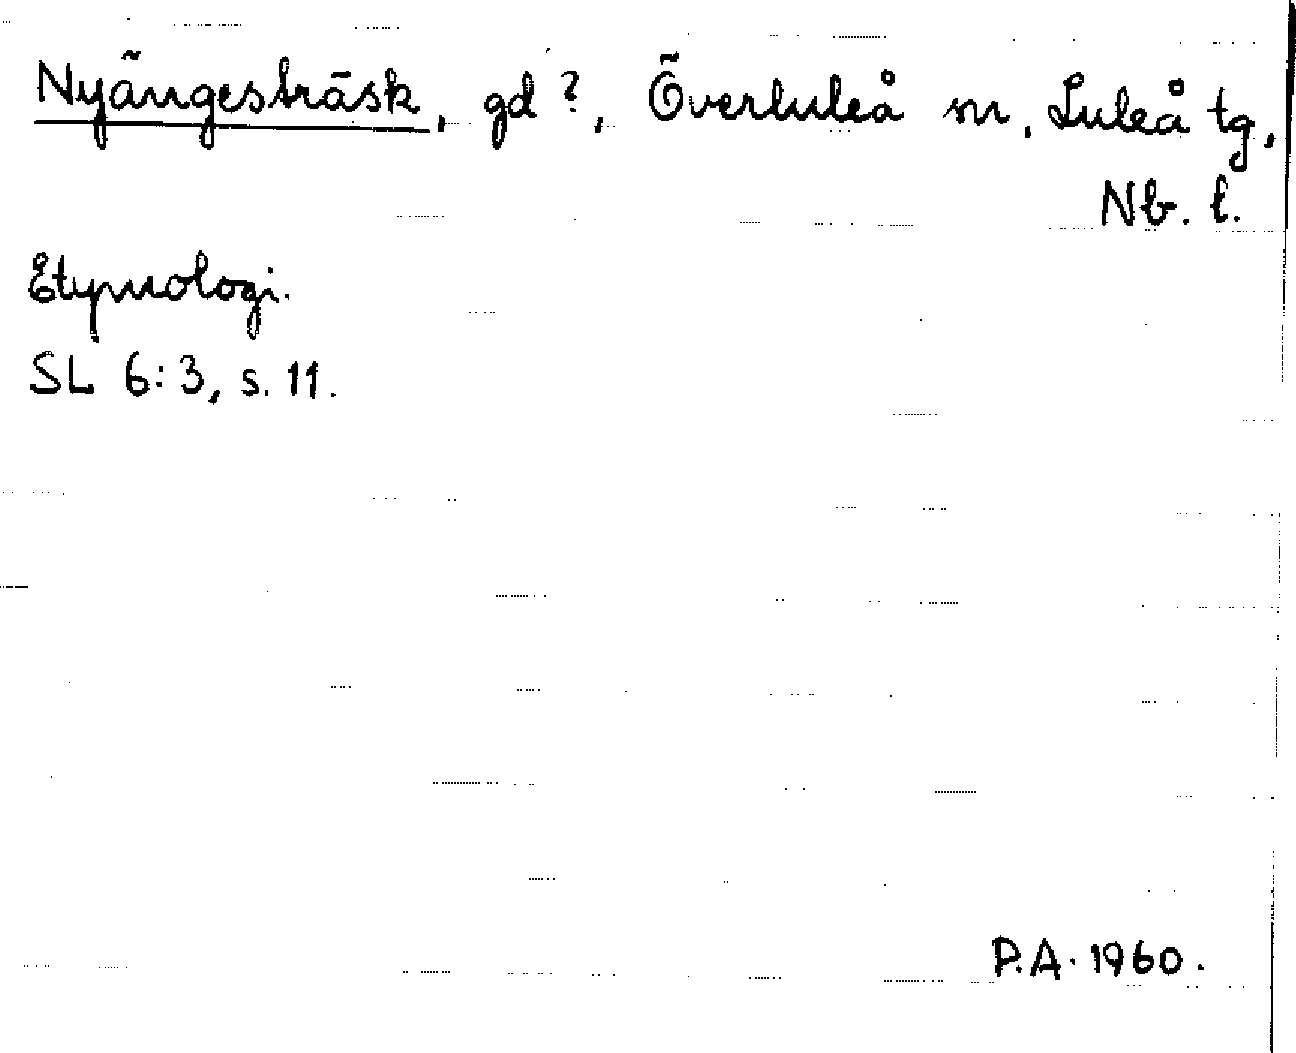 Nyängesträsk, gd ?, Överluleå sn, Luleå tg,
Nb. l.
Etymologi.
SL 6:3, s. 11.
P.A. 1960.